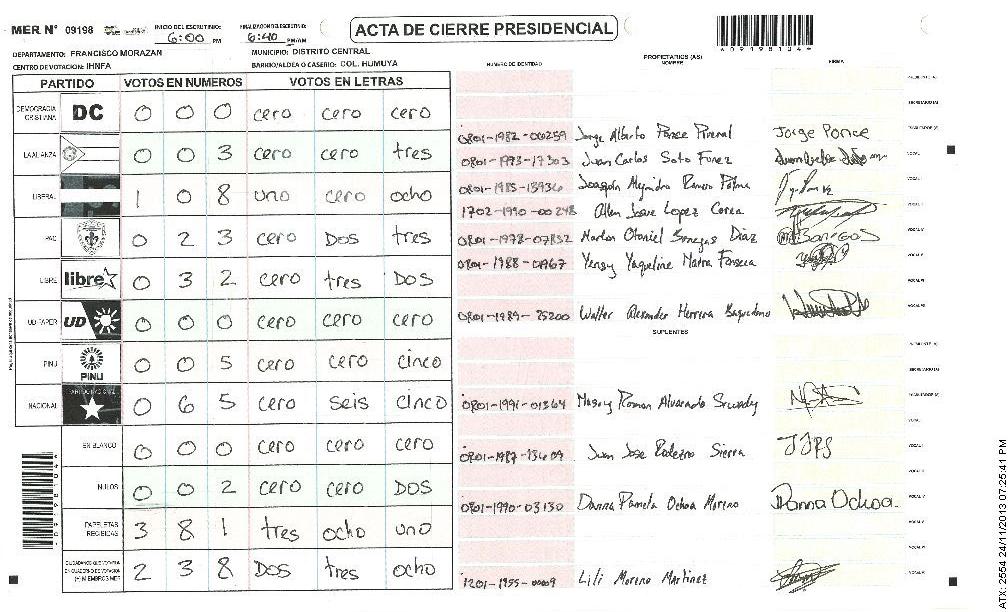 MER N° 09198 INICIO DEL ESCRUTINIO: 6:00 PM FINALIZACION DEL ESCRUTINIO: 6:40 PM/AM
ACTA DE CIERRE PRESIDENCIAL
DEPARTAMENTO: FRANCISCO MORAZAN MUNICIPIO: DISTRITO CENTRAL
CENTRO DE VOTACION: IHNFA BARRIO/ALDEA O CASERIO: COL. HUMUYA
NUMERO DE IDENTIDAD PROPIETARIOS (AS) NOMBRE FIRMA
PARTIDO VOTOS EN NUMEROS VOTOS EN LETRAS
DEMOCRACIA CRISTIANA DC 0 0 0 cero cero cero
LA ALIANZA 0 0 3 cero cero tres
LIBERAL 1 0 8 uno cero ocho
PAC 0 2 3 cero DOS tres
LIBRE libre 0 3 2 cero tres DOS
UD-FAPER UD 0 0 0 cero cero cero
PINU PINU 0 0 5 cero cero cinco
NACIONAL 0 6 5 cero seis cinco
EN BLANCO 0 0 0 cero cero cero
NULOS 0 0 2 cero cero DOS
PAPELETAS RECIBIDAS 3 8 1 tres ocho uno
2 3 8 DOS tres ocho
0801-1982-00259 Jorge Alberto Ponce Jorge Ponce
0801-1993-17303 Juan Carlos Soto Funez
0801-1985-13936 Joaquin Alejandro Romero Palma
1702-1990-00248 Allen Josue Lopez Correa
0801-1978-07832 Marlon Otoniel Banegas Diaz Banegas
Yensy Yaqueline Matra Fonseca
0801-1989-25200 Walter Alexander Herrera Baquedano
SUPLENTES
0801-1991-01364 Roman Alvarado
0801-1987-13609 Juan Jose Rodezno Sierra JJRS
0801-1990-03130 Danna Pamela Ochoa Moreno Danna Ochoa
1201-1955-0009 Lili Moreno Martinez
ATX: 2554 24/11/2013 07:25:41 PM